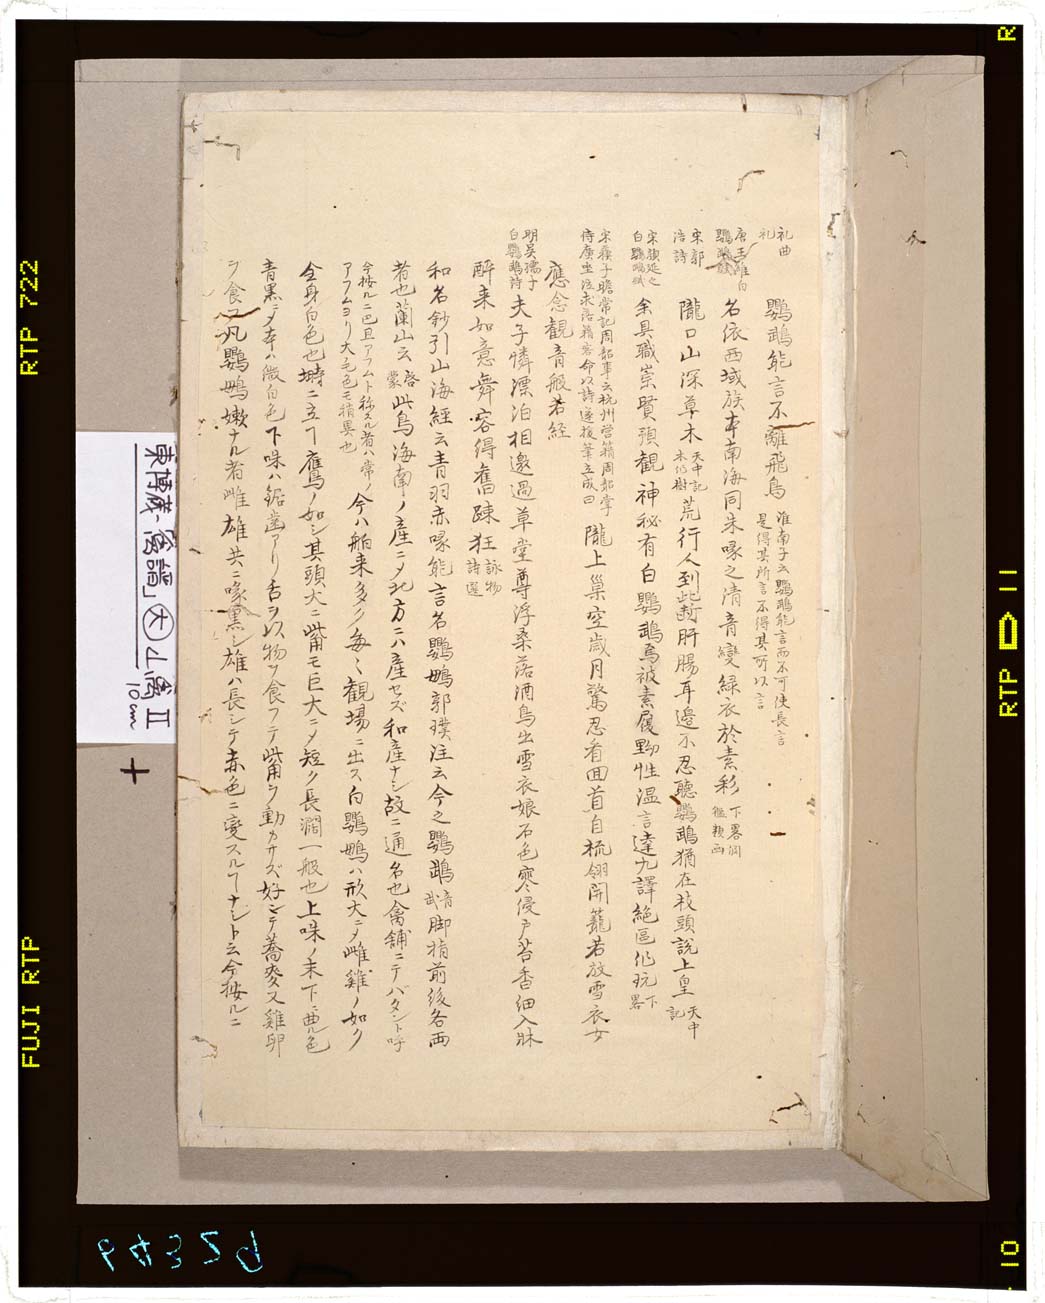 礼曲
礼 鸚鵡能言不離飛鳥 淮南子云鸚鵡能言而不可使長言
是得其所言不得其所以言
唐王維白
鸚鵡賦 名依西域族本南海同朱喙之清音變緑衣於素彩 下畧淵
鑑類函
宋郭
浩詩 隴口山深草木 天中記
木作樹 荒行人到此断肝腸耳邉不忍聴鸚鵡猶在枝頭説上皇 天中
記
宋顔延之
白鸚鵡賦 余具職崇賢預觀神秘有白鸚鵡焉被素履黝性温言達九譯絶區作玩 下
畧
宋蘓子瞻常記周韶事云杭州営籍周韶
侍席坐泣求落籍容命以詩遂援筆立成曰 隴上巣空歳月驚忍看囬首自梳翎開籠若放雪衣女
應念観音般若経
明吴孺子
白鸚鵡詩 夫子憐漂泊相邀過草堂尊浮桑落酒鳥出雪衣娘石色寒侵户苔香細入牀
酔来如意舞容得舊踈狂 詠物
詩選
和名鈔引山海經云青羽赤喙能言名鸚䳇郭璞注云今之鸚鵡 音
武 脚指前後各両
者也蘭山云 啓
蒙 此鳥海南ノ産ニメ北方ニハ産セズ和産ナシ故ニ通名也禽舗ニテバタント呼
今按ルニ巴旦アフムト称スル者ハ常ノ
アフムヨリ大ニモ色モ稍異也 今ハ舶来多ク毎々観場ニ出ス白鸚䳇ハ形大ニメ雌雞ノ如ク
全身白色也塒ニ立丁鷹ノ如シ其頭大ニ觜モ巨大ニメ短ク長濶一般也上咮ノ末下ニ曲ル色
青黒ニメ本ハ微白色下咮ハ鋸歯アリ舌ヲ以物ヲ食フテ觜ヲ動カサズ好ンテ蕎麥又雞卵
ヲ食フ凡鸚䳇嫩ナル者雌雄共ニ喙黒シ雄ハ長シテ赤色ニ變スル丁ナシト云今按ルニ
東博蔵「禽譜」大 山禽 II
10cm
RTP 722
FUJI RTP
RTP
11
10
R